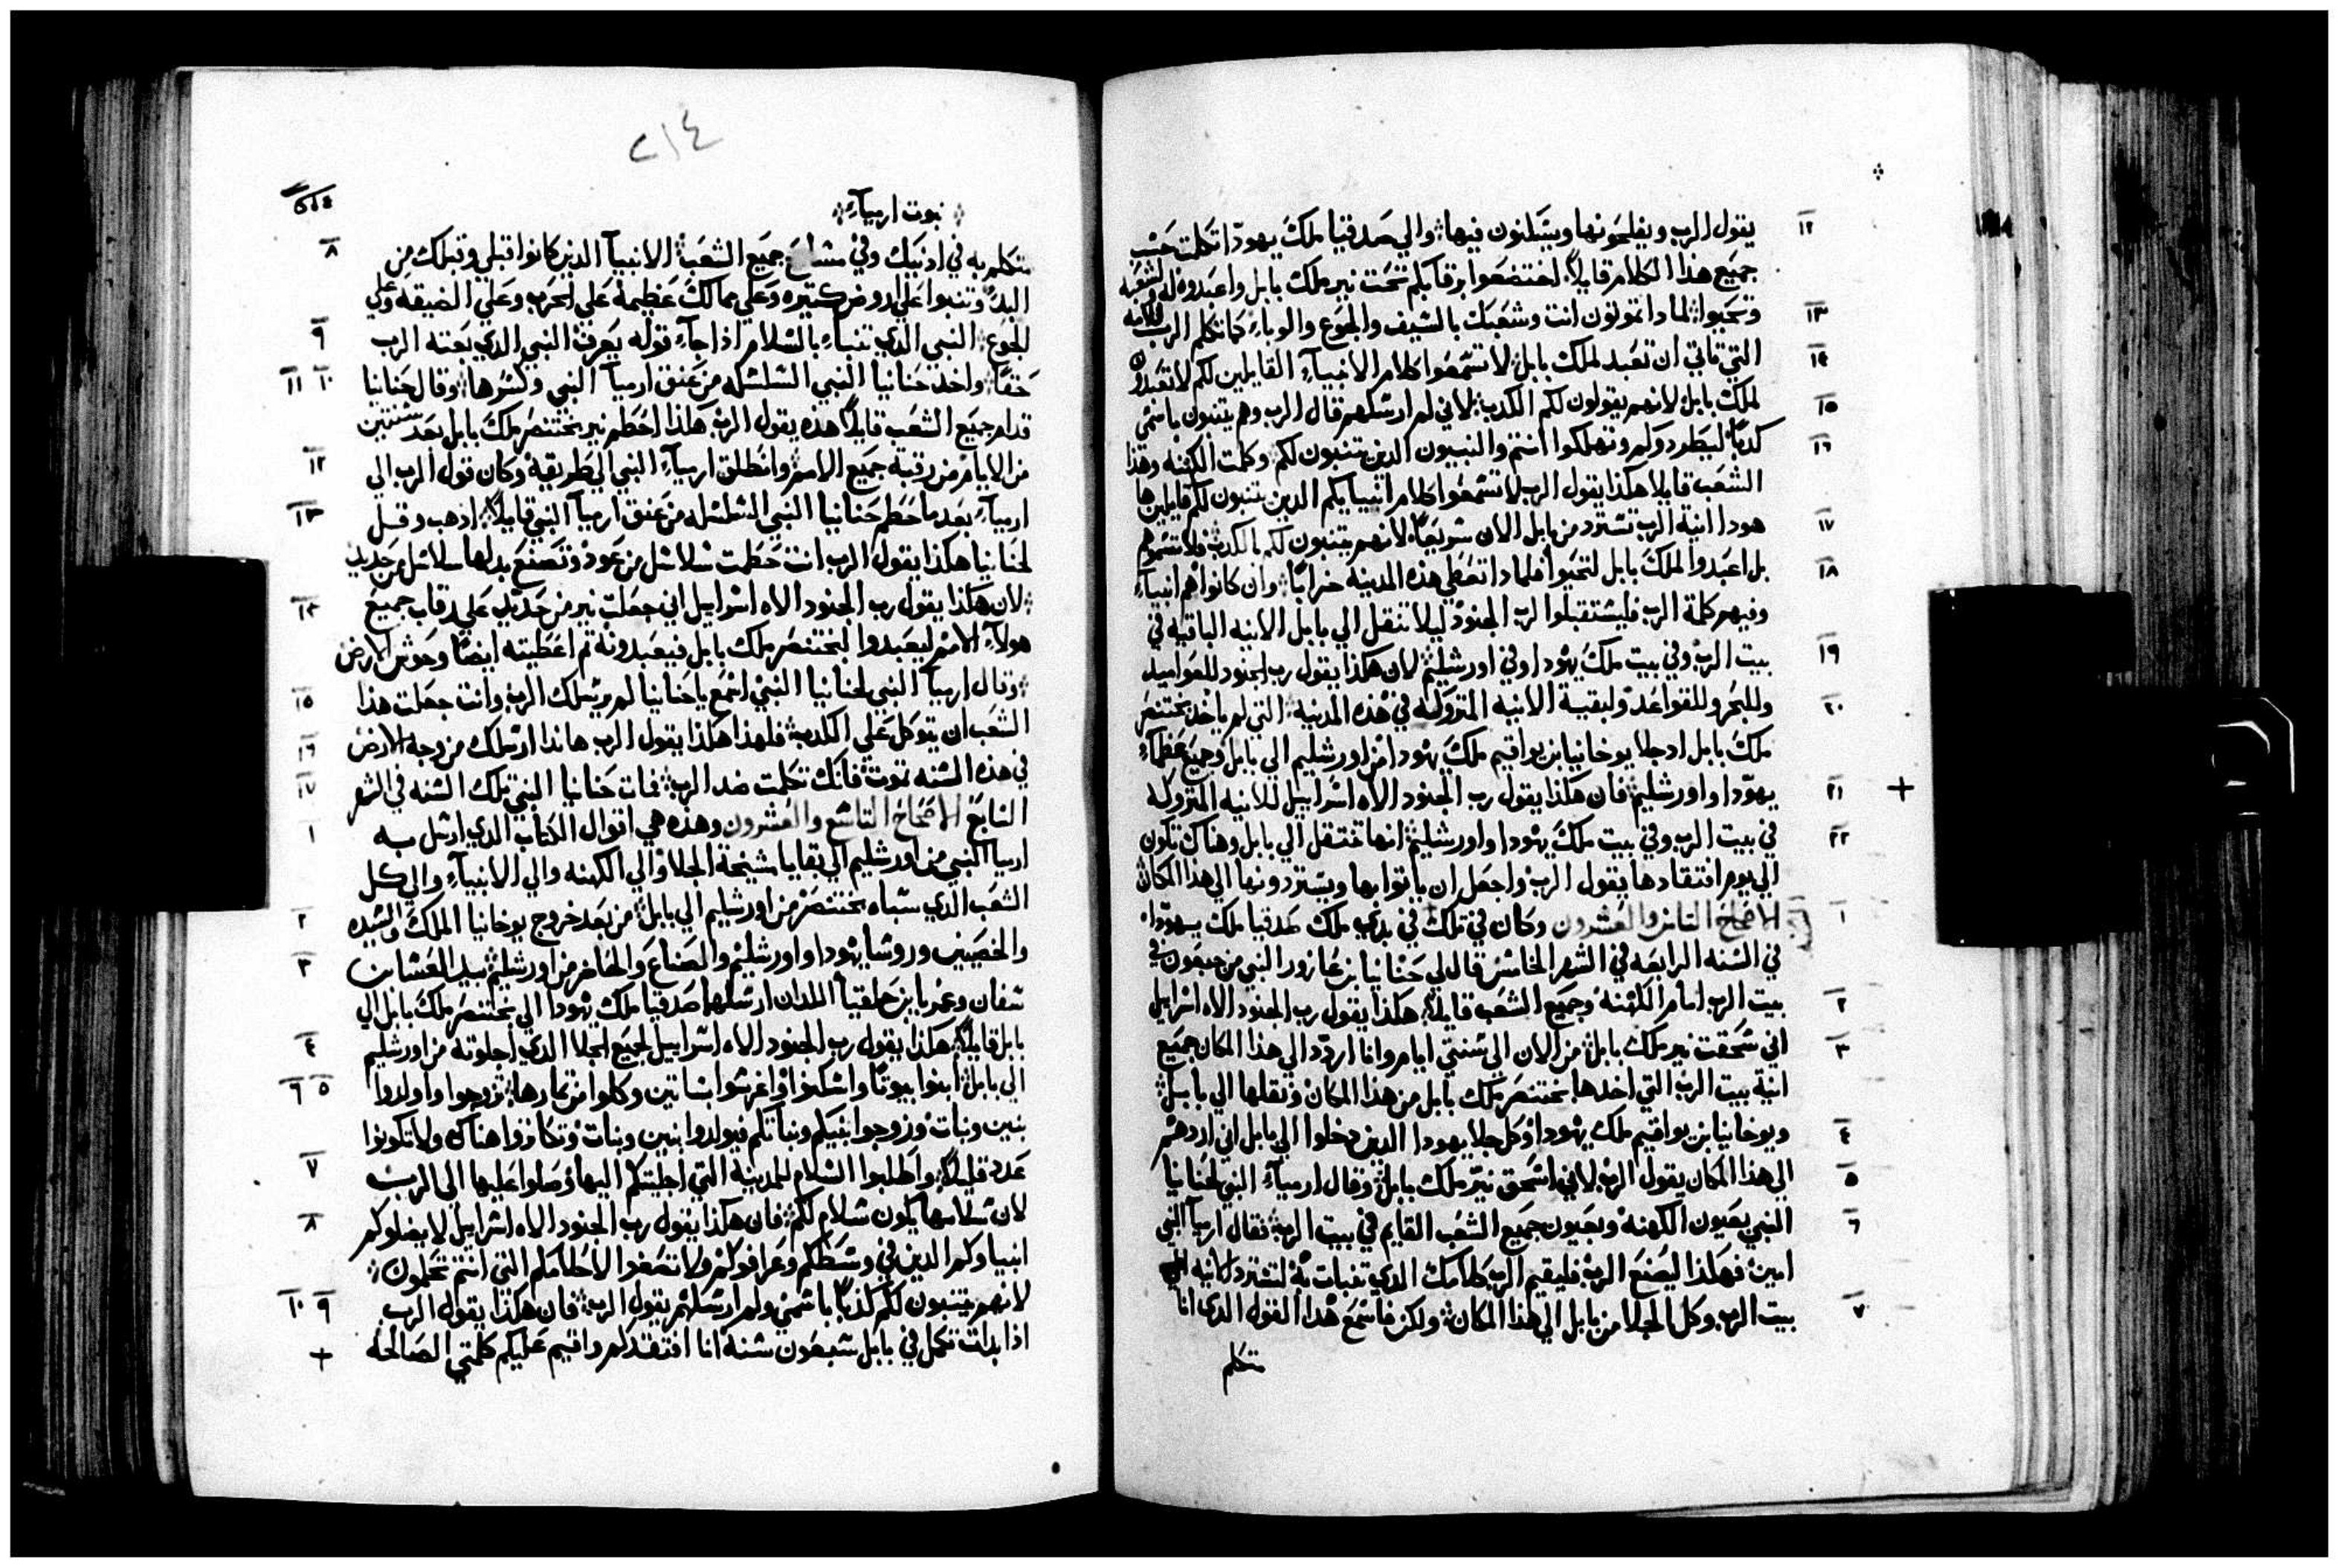 يقول الرب ويفلحونها ويسكنون فيها والي صدقيا ملك يهودا تكلمت حسب
جميع هذا الكلام قايلاً اخضعوا رقابكم تحت نير ملك بابل واعبدوه له ولشعبه
وتحيوا لماذا تموتون انت وشعبك بالسيف والجوع والوباء كما تكلم الرب للامه
التي تاني ان تعبد لملك بابل لا تسمعوا كلام الانبياء القايلين لكم لا تعبدون
لملك بابل لانهم يقولون لكم الكدب لاني لم ارسلهم قال الرب وهم يتنبون باسمي
كدباً ليطردولم وتهلكوا انتم والنبيون الدين يتنبون لكم وكلمت الكهنه وهذا
الشعب قايلا هكذا يقول الرب لا تسمعوا كلام انبيايكم الدين يتنبون لكم قايلين ها
هودا انية الرب تسترد من بابل الان سريعاً لانهم يتنبون لكم بالكدب فلا تسمعوهم
بل اعبدوا لملك بابل لتحيوا فلمادا تعطي هذه المدينه خراباً وان كانوا هم انبياء
وفيهم كلمة الرب فليستقبلوا لرب الجنود ليلا تنقل الي بابل الانيه الباقيه في
بيت الرب وفي بيت ملك يهودا وفي اورشليم لان هكذا يقول رب الجنود للعواميد
وللبحر وللقواعد ولبقية الانيه المتروكه في هذه المدينه التي لم ياخد بختنصر
ملك بابل ادجلا يوخانيا ابن يواقيم ملك يهودا من اورشليم الي بابل وجميع عظماء
يهودا واورشليم فان هكذا يقول رب الجنود الاه اسراييل للانيه المتروكه
في بيت الرب وفي بيت ملك يهودا واورشليم انها تنتقل الي بابل وهناك تكون
الي يوم افتقادها يقول الرب واجعل ان ياتوا بها ويستردونها الي هذا المكان
الاصحاح التامن والعشرون وكان في تلك في بدي ملك صدقيا ملك يهودا
في السنه الرابعه في الشهر الخامس قال لي حنانيا بن عازور النبي من جبعون في
بيت الرب امام الكهنه وجميع الشعب قايلاً هكذا يقول رب الجنود الاه اسراييل
اني سحقت نير ملك بابل من الان الي سنتي ايام وانا اردد الي هذا المكان جميع
انية بيت الرب التي اخدها بختنصر ملك بابل من هذا المكان ونقلها الي بابل
ويوخانيا بن يواقيم ملك يهودا وكل جلا يهودا الدين دخلوا الي بابل اني اردهم
الي هذا المكان يقول الرب لاني اسحق نير ملك بابل وقال ارمياء النبي لحنانيا
النبي بعيون الكهنه وبعيون جميع الشعب القايم في بيت الرب فقال ارميا النبي
امين فهكذا ليصنع الرب فليقيم الرب كلامك الدي تنبات به لتسترد الانيه الي
بيت الرب وكل الجلا من بابل الي هذا المكان ولكن فاسمع هذا القول الدي انا
متكلم
٢١٤
نبوت ارمياء
متكلم به في ادنيك وفي مسامع جميع الشعب الانبيآ الدين كانوا قبلي وقبلك من
البدء وتنبوا علي اروض كتيره وعلي ممالك عظيمه علي الحرب وعلي الضيقه وعلي
الجوع النبي الدي تنباء بالسلام اذا جاء قوله يعرف النبي الدي بعته الرب
حقاً واخد حنانيا النبي السلسله من عنق ارميآ النبي وكسرها وقال حنانيا
قدام جميع الشعب قايلاً هذه يقول الرب هكذا احطم نير بختنصر ملك بابل بعد سنتين
من الايام من رقبة جميع الامم وانطلق ارمياء النبي الي طريقه وكان قول الرب الي
ارمياء بعد ما حطم حنانيا النبي السلسله من عنق ارميا النبي قايلاً ادهب وقل
لحنانيا هكذا يقول الرب انت حطمت سلاسل من عود وتصنع بدلها سلاسل من حديد
لان هكذا يقول رب الجنود الاه اسراييل اني جعلت نير من حديد علي رقاب جميع
هولاء الامم ليعبدوا لبختنصر ملك بابل فيعبدونه تم اعطيته ايضاً وحوش الارض
وقال ارميآ النبي لحنانيا النبي اسمع يا حنانيا لم يرسلك الرب وانت جعلت هذا
الشعب ان يتوكل علي الكدب فلهذا هكذا يقول الرب هاندا ارسلك من وجه الارض
في هذه السنه تموت فانك تكلمت ضد الرب فمات حنانيا النبي تلك السنه في الشهر
السابع الاصحاح التاسع والعشرون وهذه هي اقوال الكتاب الدي ارسل به
ارميا النبي من اورشليم الي بقايا مشيخة الجلا والي الكهنه والي الانبياء والي كل
الشعب الدي سباه بختنصر من اورشليم الي بابل من بعد خروج يوخانيا الملك والسيده
والخصيين وروسا يهودا واورشليم والصناع والحاضر من اورشليم بيد العسا بن
شفان وعمريا بن حلقيا اللدان ارسلهما صدقيا ملك يهودا الي بختنصر ملك بابل الي
بابل قايلاً هكذا يقول رب الجنود الاه اسراييل لجميع الجلا الدي اجلوته من اورشليم
الي بابل ابنوا بيوتاً واسكنوا واغرسوا بساتين وكلوا من تمارها تزوجوا واولدوا
بنين وبنات وزوجوا بنيكم وبناتكم فيولدوا بنين وبنات وتكاتروا هناك ولا تكونوا
عدد قليلاً واطلبوا السلام للمدينة التي اجليتكم اليها وصلوا عليها الي الرب
لان سلامها يكون سلام لكم فان هكذا يقول رب الجنود الاه اسراييل لا يضلوكم
انبياوكم الدين في وسطكم وعرافوكم ولا تصغوا لاحلامكم التي انتم تحلمون
لانهم يتنبون لكم كذباً باسمي ولم ارسلهم يقول الرب فان هكذا يقول الرب
اذا بدات تكمل في بابل سبعون سنه انا افتقدكم واقيم عليكم كلمتي الصالحه